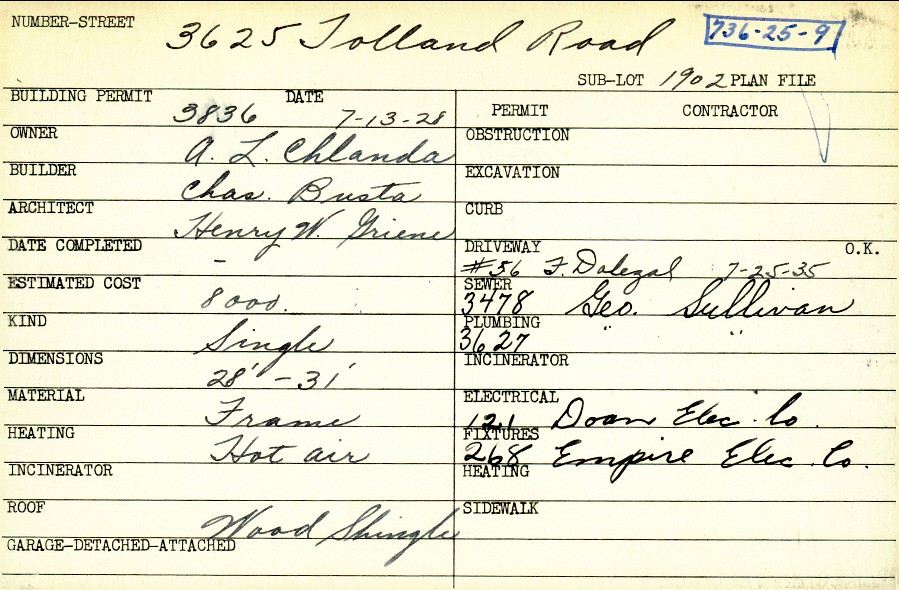 NUMBER-STREET 3625 Tolland Road 736-25-9
SUB-LOT 1902 PLAN FILE
BUILDING PERMIT 3836 DATE 7-13-28
OWNER A. L. Chlanda
BUILDER Chas. Busta
ARCHITECT Henry W. Griene
DATE COMPLETED -
ESTIMATED COST 8000.
KIND Single
DIMENSIONS 28' - 31'
MATERIAL Frame
HEATING Hot air
INCINERATOR
ROOF Wood Shingle
GARAGE-DETACHED-ATTACHED
PERMIT CONTRACTOR
OBSTRUCTION
EXCAVATION
CURB
DRIVEWAY O.K.
#56 F. Dolezal 7-25-35
SEWER
3478 Geo. Sullivan
PLUMBING
3627 " "
INCINERATOR
ELECTRICAL
121 Doan Elec. Co.
FIXTURES
268 Empire Elec. Co.
HEATING
SIDEWALK